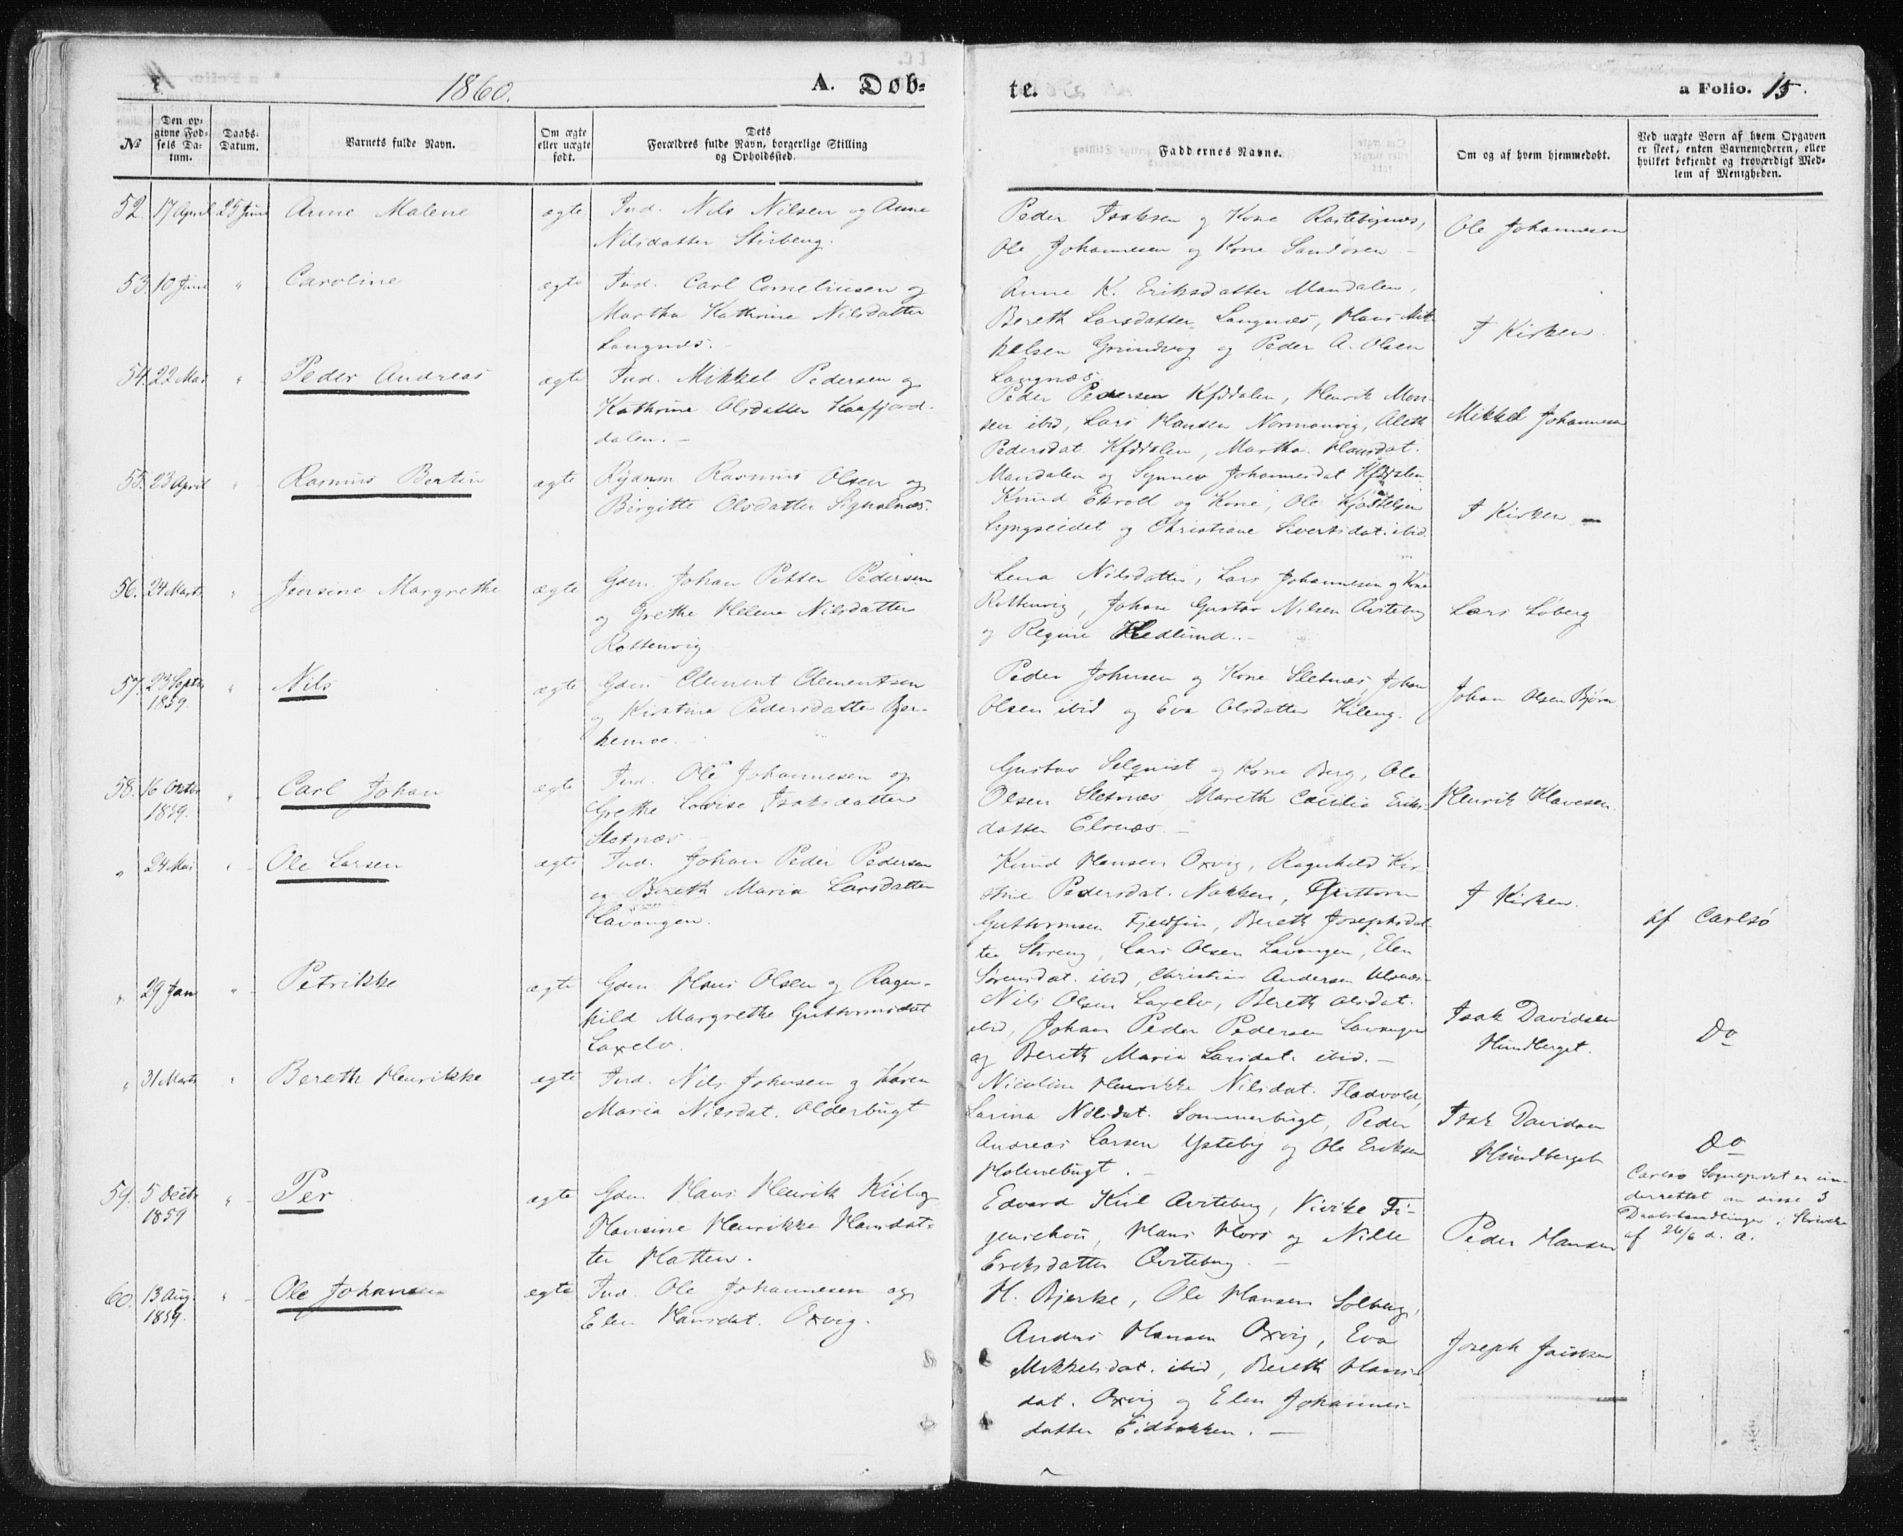 1860.
A. Døb-
te.
a Folio. 15.
№
Den op-
givne Fød-
sels Da-
tum.
Daabs-
Datum.
Barnets fulde Navn.
Om ægte
eller uægte
født.
Dets
Forældres fulde Navn, borgerlige Stilling
og Opholdssted.
Faddernes Navne.
Om og af hvem hjemmedøbt.
Ved uægte Børn af hvem Opgaven
er skeet, enten Barnemoderen, eller
hvilket bekjendt og troværdigt Med-
lem af Menigheden.
52. 17 April 25 Juni Anne Malene ægte Ind. Nils Nilsen og Anne
Nilsdatter Stirberg.
Peder Isaksen og Kone Rastebynæs,
Ole Johannesen og Kone Sandøren -
Ole Johannesen
53. 10 Juni " Caroline ægte Ind. Carl Corneliusen og
Martha Kathrine Nilsdatter
Langnæs. -
Anne K. Eriksdatter Mandalen,
Bereth Larsdatter Langnæs, Hans Mik-
kelsen Grundvog og Peder A. Olsen
Langnæs
I Kirken
54. 22 Mai " Peder Andreas ægte Ind. Mikkel Pedersen og
Kathrine Olsdatter Kaafjord-
dalen. -
Peder Pedersen Kfjddalen, Henrik Mon-
sen ibid, Lars Hansen Normanvig, Aleth
Pedersdat. Kfjddalen, Martha Hansdat.
Mandalen og Synnev Johannesdat Kfjddalen
Mikkel Johannesen
55. 23 April " Rasmus Bertin ægte Rydnm Rasmus Olsen og
Birgitte Olsdatter Signalnæs.
Knud Ekrold og Kone, Ole Kjostelsen
Lyngseidet og Christiane Sivertsdat. ibid.
I Kirken -
56. 24 Marts " Jensine Margrethe ægte Gdm. Johan Petter Pedersen
og Grethe Helene Nilsdatter
Rottenvig
Lena Nilsdatter, Lars Johannesen og Kone
Rottenvig, Johan Gustav Nilsen Qviteberg
og Regine Hedlund. -
Lars Løberg
57. 23 Septbr
1859. " Nils ægte Gdm. Clement Clementsen
og Kirstina Pedersdatter Bjer-
kemoe.
Peder Johnsen og Kone Sletnæs, Johan
Olsen ibid og Eva Olsdatter Kileng.
Johan Olsen Bjøra
58. 16 Octbr
1859. " Carl Johan ægte Ind. Ole Johannesen og
Grethe Lovise Isaksdatter
Sletnæs
Gustav Selqvist og Kone Berg, Ole
Olsen Sletnæs Mareth Cecilia Eriks-
datter Elvnæs. -
Henrik Klavesen.
" 24 Mai " Ole Larsen ægte Ind. Johan Peder Pedersen
og Bereth Maria Larsdatter
Lavangen.
Knud Hansen Oxvig, Ragnhild Kir-
stine Pedersdat. Nakken, Guttorm
Guttormsen Fjeldfin, Bereth Josephsdat-
ter Streng, Lars Olsen Lavangen, Elen
Sørensdat. ibid, Christian Andersen Ulsnæs
I Kirken.
af Carlsø
" 29 Jan " Petrikke ægte Gdm Hans Olsen og Ragn-
hild Margrethe Guttormsdat
Laxelv.
Nils Olsen Laxelv, Bereth Olsdat.
ibid, Johan Peder Pedersen Lavangen
og Bereth Maria Larsdat. ibid. -
Isak Davidsen
Hundberget.
Do
" 31 Marts " Bereth Henrikke ægte Ind. Nils Johnsen og Karen
Maria Nilsdat. Olderbugt
Nicoline Henrikke Nilsdat. Fladvold,
Larina Nilsdat. Sommerbugt, Peder
Andreas Larsen Ysteby og Ole Eriksen
Holmebugt. -
Isak Davidsen
Hundberget
Do
Carlsø Sognepræst er un-
derrettet om disse 3
Daabshandlinger i Skrivelse
af 26/6 d. A.
59. 5 Decbr
1859 " Per ægte Gdm. Hans Henrik Kiil og
Hansine Henrikke Hansdat-
ter Hatten.
Edvard Kiil Qviteberg, Vivike Fi-
genschou, Hans Mors og Nille
Eriksdatter Qviteberg. -
Peder Hansen
60. 13 Aug.
1859. " Ole Johan ægte Ind. Ole Johannesen og
Elen Hansdat. Oxvig.
H. Bjerke, Ole Hansen Solberg,
Anders Hansen Oxvig, Eva
Mikkelsdat. ibid, Bereth Hans-
dat. Oxvig og Elen Johannes-
datter Eidbakken. -
Joseph